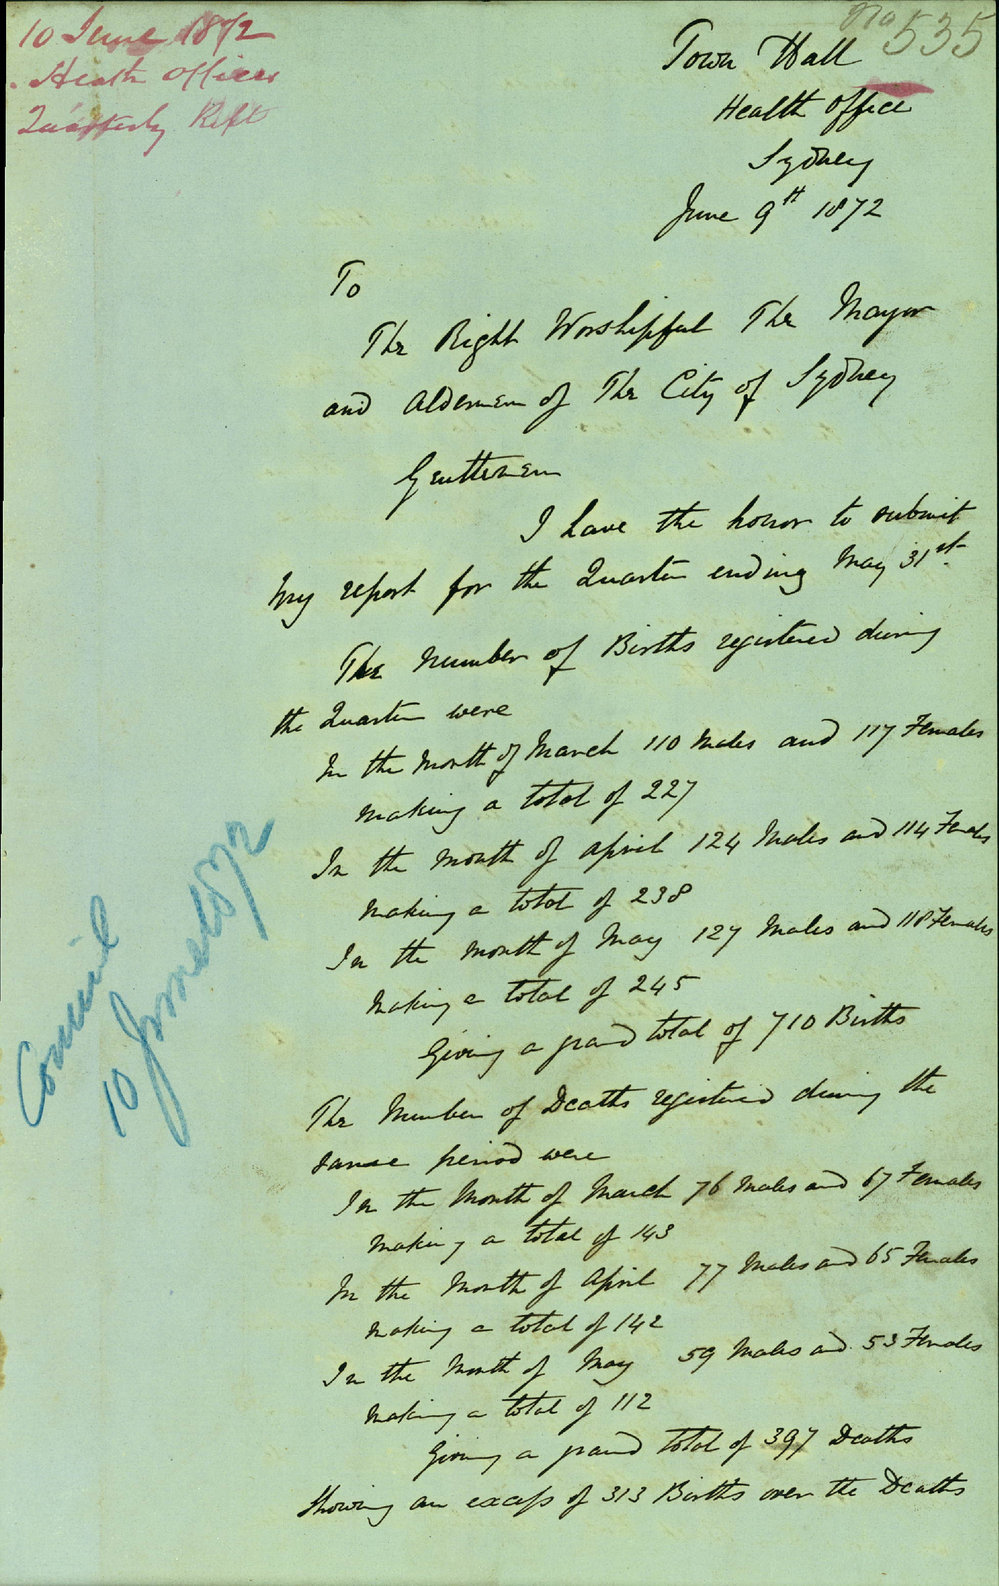 10 June 1872
Health Officers
Quarterly Rept
No 535
Town Hall
Health Office
Sydney
June 9th 1872
To
The Right Worshipful The Mayor
and Aldermen of The City of Sydney
Gentlemen
I have the honor to submit
my report for the Quarter ending May 31st.
The Number of Births registered during
the Quarter were
In the Month of March 110 Males and 117 Females
making a total of 227
In the Month of April 124 Males and 114 Females
making a total of 238
In the Month of May 127 Males and 118 Females
making a total of 245
Giving a grand total of 710 Births
The Number of Deaths registered during the
same period were
In the Month of March 76 Males and 67 Females
making a total of 143
In the Month of April 77 Males and 65 Females
making a total of 142
In the Month of May 59 Males and 53 Females
making a total of 112
Giving a grand total of 397 Deaths
Showing an excess of 313 Births over the Deaths
Council
10 June 1872